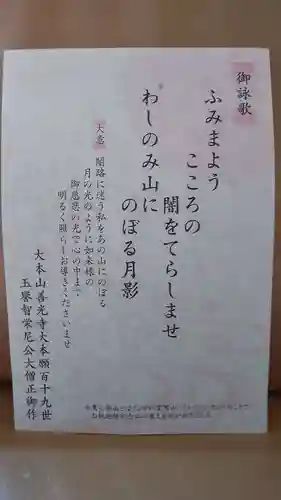 御詠歌
ふみまよう
こころの
闇をてらしませ
わしのみ山に
のぼる月影
大意
闇路に迷う私をあの山にのぼる
月の光のように如来様の
御慈悲の光で心の中まで
明るく照らしお導きくださいませ
大本山善光寺大本願百十九世
玉譽智栄尼公大僧正御作